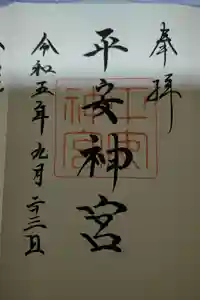 奉拝
平安神宮
令和五年九月二十三日